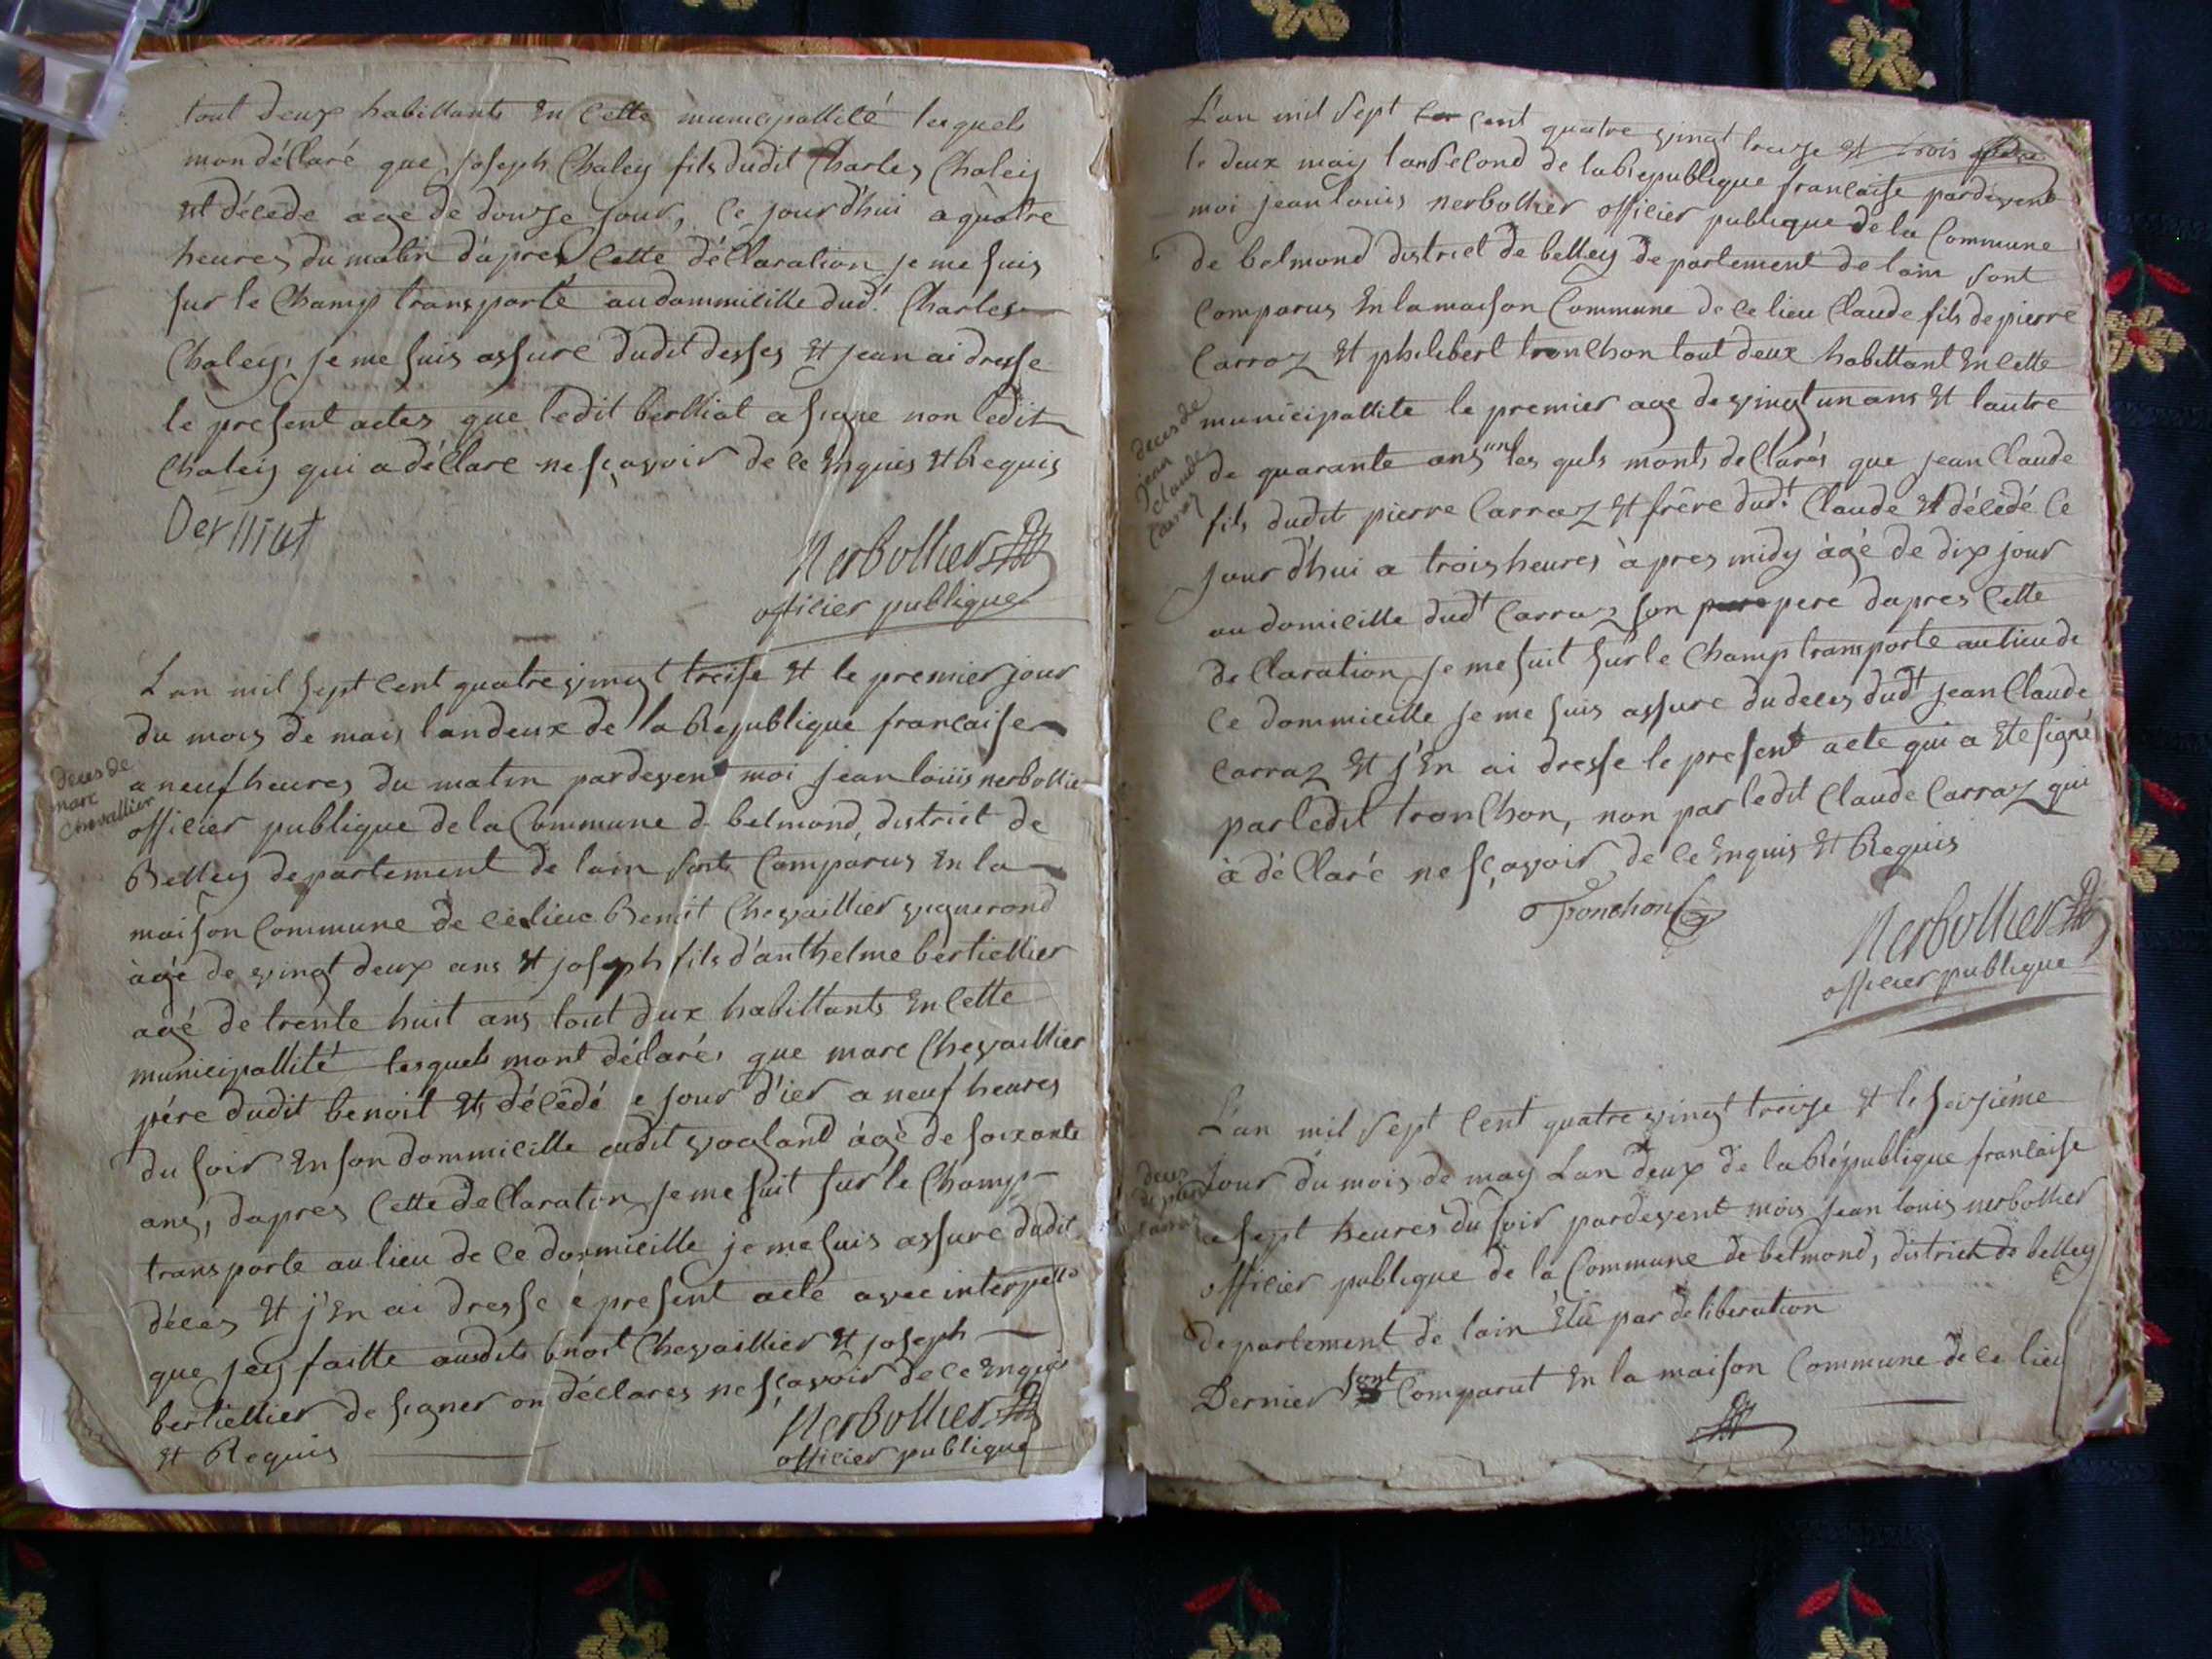 tout deux habittants En Cette municipallité lesquels
mon déClaré que Joseph Chaley fils dudit Charles Chaley
est décédé agé de douse jour, Ce jourd'hui a quatre
heures du matin d'apres Cette déClaration je me suis
sur le Champ transporté au dommicille dud.t Charles
Chaley, je me suis assuré dudit desses Et jean ai dresse
le present actes que ledit berlliat a signe non ledit
Chaley qui a déClare ne sçavoir de ce Enquis Et Requis
Berlliat
Nerbollier
officier publique
Lan mil sept Cent quatre vingt treise Et le premier jour
du mois de mais landeux de la République francaise
deces de
marc
Chevallier
a neuf heures du matin pardevent moi jean louis nerbollier
officier publique de la Commune de belmond, district de
Belley departement de lain sont Comparus En la
maison Commune de Ce lieu Benoit Chevaillier vignerond
àgé de vingt deux ans Et joseph fils d'anthelme bertiellier
agé de trente huit ans tout deux habittants En Cette
municipallité lesquels mont déclarés que marc Chevaillier
pére dudit benoit Est décédé le jour d'ier a neuf heures
du soir En son dommicille audit vogland àgé de soixante
ans, dapres Cette deClaration je me suit sur le Champ
transporte au lieu de Ce dommicille je me suis assure dudit
déces Et j'En ai dresse le present acte avec interpelle
que jey faitte ausdits benoit Chevaillier Et joseph
bertiellier de signer on déclares ne sçavoir de ce Enquis
Et Requis
Nerbollier
officier publique
L'an mil sept Cent quatre vingt treise Et trois
le deux mais lan second de la Republique francaise pardevent
moi jean louis nerbollier officier publique de la Commune
de belmond district de belley departement de lain sont
Comparus En la maison Commune de Ce lieu Claude fils de pierre
Carraz Et philibert tronChon tout deux habittant En Cette
municipallite le premier age de vingt un ans Et lautre
deces de
jean
claude
Carraz
de quarante un ans les quls monts deClarés que jean Claude
fils dudit pierre Carraz Et frêre dud.t Claude Est décédé Ce
jourd'hui a trois heures àpres midy àgé de dix jour
au domicille dud.t Carraz son pere dapres Cette
deClaration je me suit sur le Champ transporte au lieu de
Ce dommicille je me suis assure du deces dud.t jean Claude
Carraz Et j'En ai dresse le present acte qui a Ete signé
par ledit tronChon, non par ledit Claude Carraz qui
à déClaré ne sçavoir de ce Enquis Et Requis
Tronchon
Nerbollier
officier publique
L'an mil sept Cent quatre vingt treise Et le seisiéme
deces
Jour du mois de may Lan deux de la République francaise
a sept heures du soir pardevent mois jean louis nerbollier
officier publique de la Commune de belmond, district de belley
departement de lain Elû par deliberation
Dernier sont Comparut En la maison Commune de Ce lieu